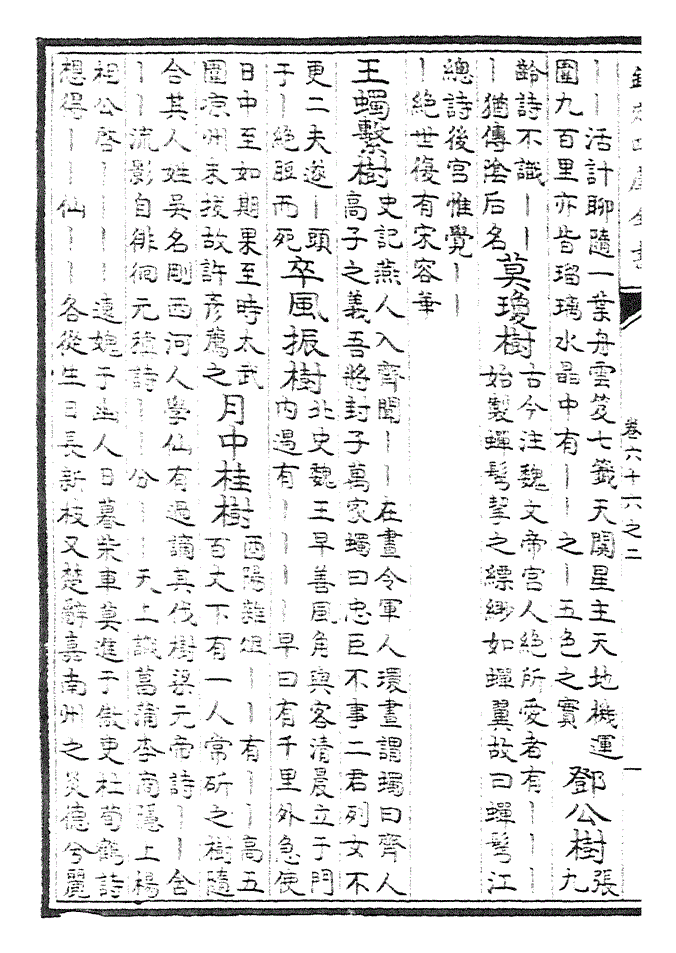 欽定四庫全書
卷六十六之二
一
｜｜活計聊隨一葉舟雲笈七籤天關星主天地機運
圍九百里亦皆瑠璃水晶中有｜｜之｜五色之實
鄧公樹
張
九
齡詩不識｜｜
｜猶傳陰后名
莫瓊樹
古今注魏文帝宫人絶所愛者有｜｜｜
始製蟬鬢挐之縹緲如蟬翼故曰蟬鬢江
總詩後宫惟覺｜｜
｜絶世復有宋容華
王蠋繫樹
史記燕人入齊聞｜｜在畫令軍人環畫謂蠋曰齊人
高子之義吾將封子萬家蠋曰忠臣不事二君列女不
更二夫遂｜頭
子｜絶脰而死
卒風振樹
北史魏王早善風角與客清晨立于門
内遇有｜｜｜｜早曰有千里外急使
日中至如期果至時太武
圍凉州未拔故許彦薦之
月中桂樹
酉陽雜俎｜｜有｜｜高五
百丈下有一人常斫之樹隨
合其人姓吳名剛西河人學仙有過謫其伐樹梁元帝詩｜｜舍
｜｜流影自徘徊元稹詩｜｜分｜｜天上識菖蒲李商隱上楊
相公啓｜｜｜｜遠媿于幽人日暮柴車莫進于傲吏杜荀鶴詩
想得｜｜仙｜｜各從生日長新枝又楚辭嘉南州之炎德兮麗